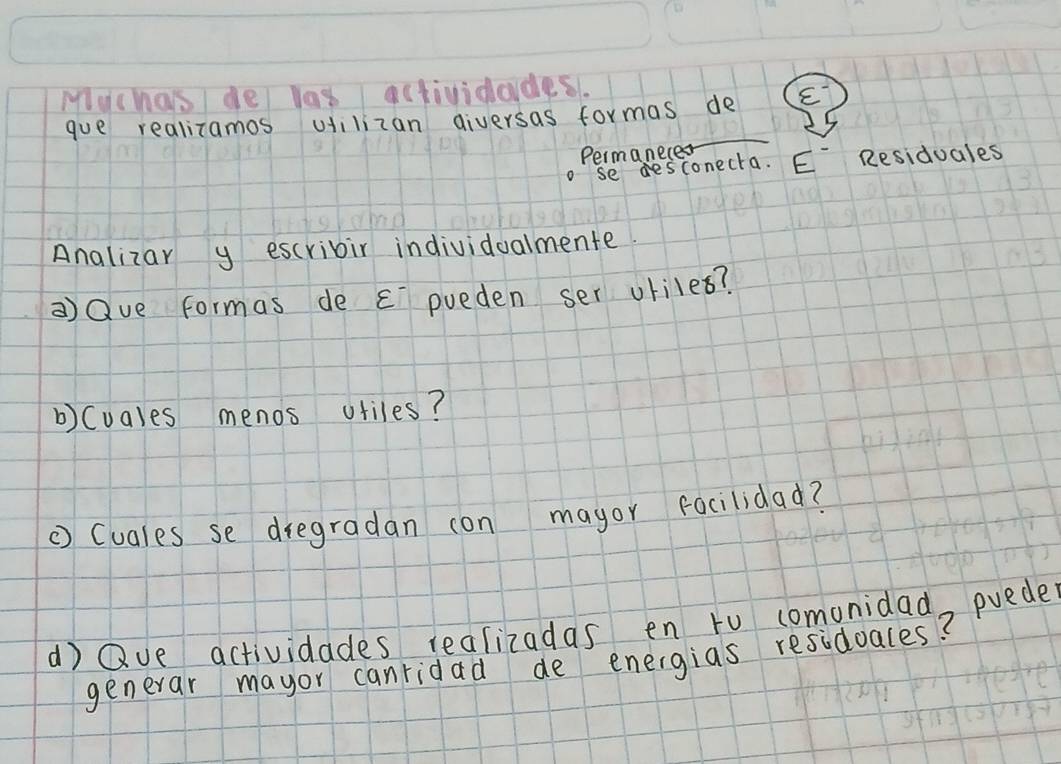 Muchas de las actividades.
que realizamos utilizan diversas formas de E⁻
Permanece
o se desconecta. E⁻ Residuales
Analizar y escribir individualmente.
a) Que formas de E⁻ pueden ser utiles?
b) Cuales menos utiles?
c) Cuales se dregradan con mayor facilidad?
d) Que actividades realizadas en tu comunidad, pueden
generar mayor cantidad de energias residuales?